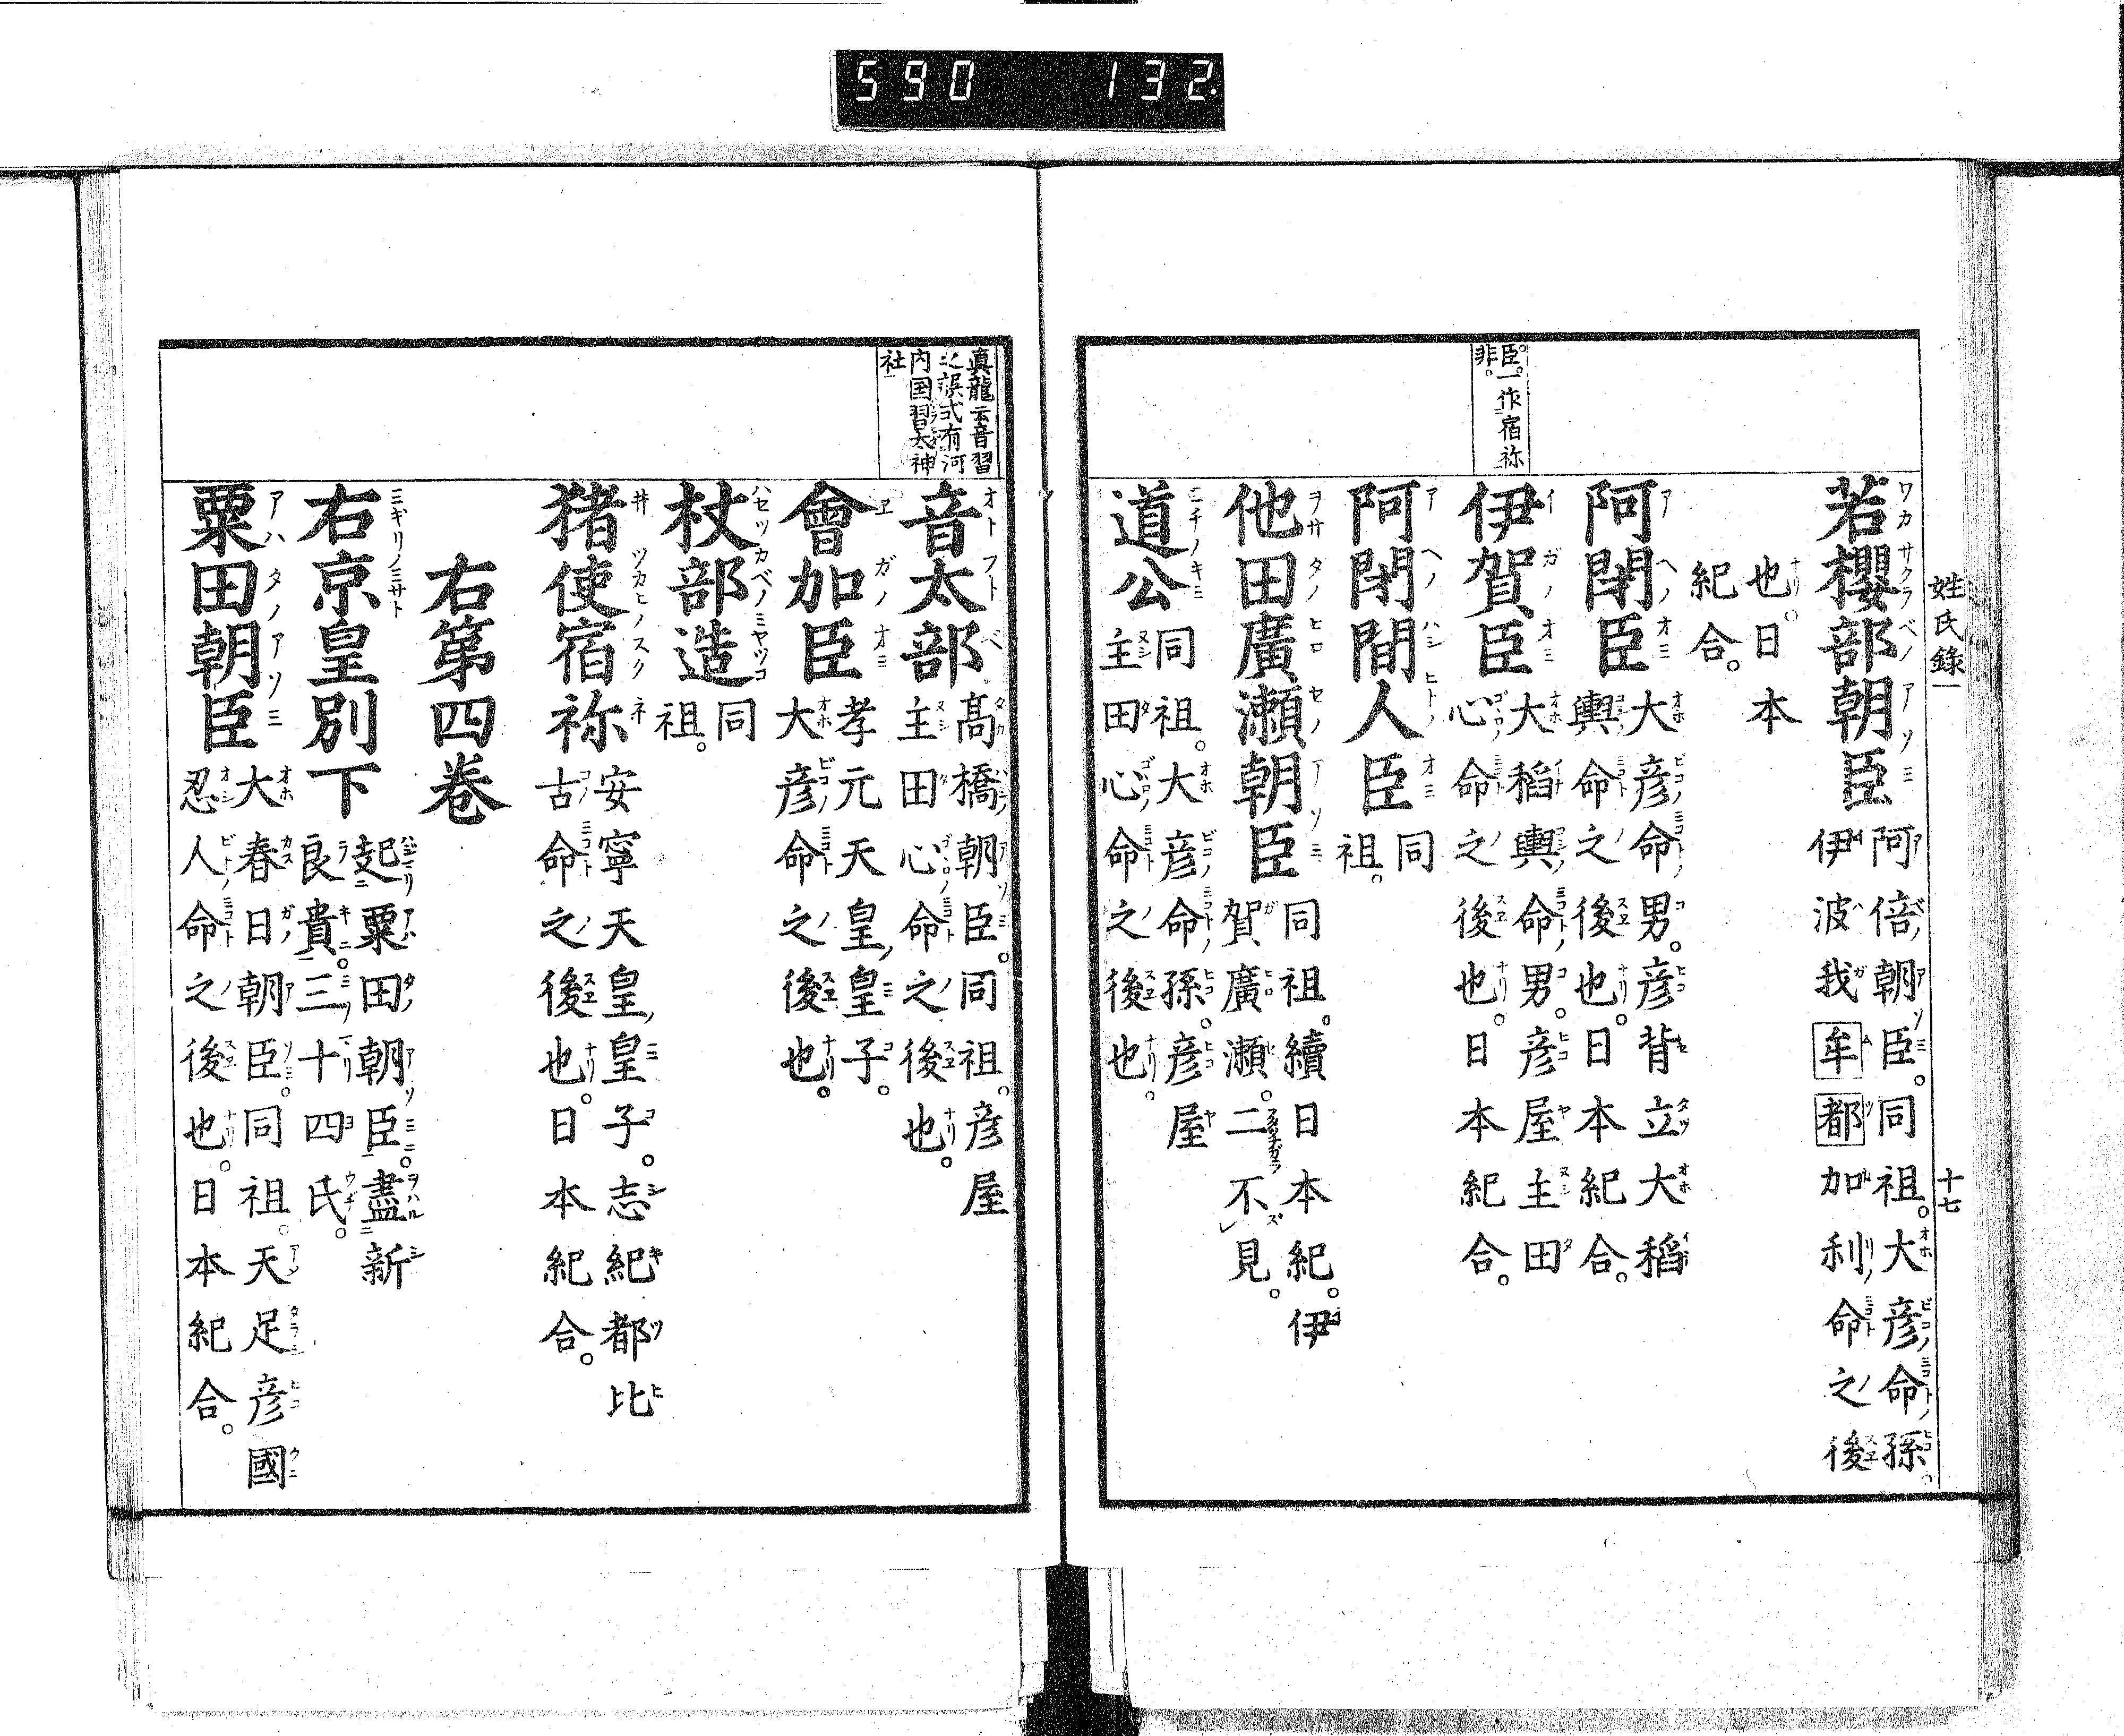 590 132.
姓氏錄一
十七
臣。一作宿祢
非。
若櫻部朝臣
阿倍朝臣。同祖。大彦命孫。
伊波我牟都加利命之後
也。日本
紀合。
阿閉臣
大彦命男。彦背立大稻
輿命之後也。日本紀合。
伊賀臣
大稻輿命男。彦屋主田
心命之後也。日本紀合。
阿閉間人臣
同
祖。
他田廣瀬朝臣
同祖。續日本紀。伊
賀廣瀬。二不見。
道公
同祖。大彦命孫。彦屋
主田心命之後也。
真龍云音習
之誤式有河
内国習太神
社
音太部
髙橋朝臣。同祖。彦屋
主田心命之後也。
會加臣
孝元天皇皇子。
大彦命之後也。
杖部造
同
祖。
猪使宿祢
安寧天皇皇子。志紀都比
古命之後也。日本紀合。
右第四巻
右京皇別下
起粟田朝臣。盡新
良貴。三十四氏。
粟田朝臣
大春日朝臣。同祖。天足彦國
忍人命之後也。日本紀合。